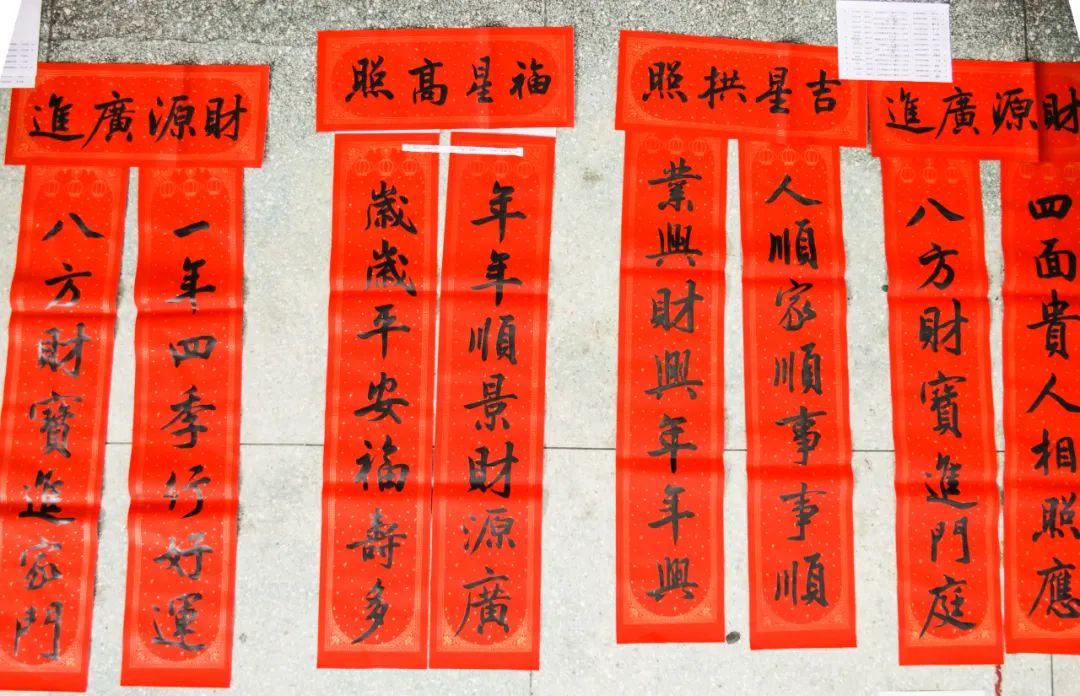 財源廣進
四面貴人相照應
八方財寶進門庭
吉星拱照
人順家順事事順
業興財興年年興
福星高照
年年順景財源廣
歲歲平安福壽多
財源廣進
一年四季行好運
八方財寶進家門